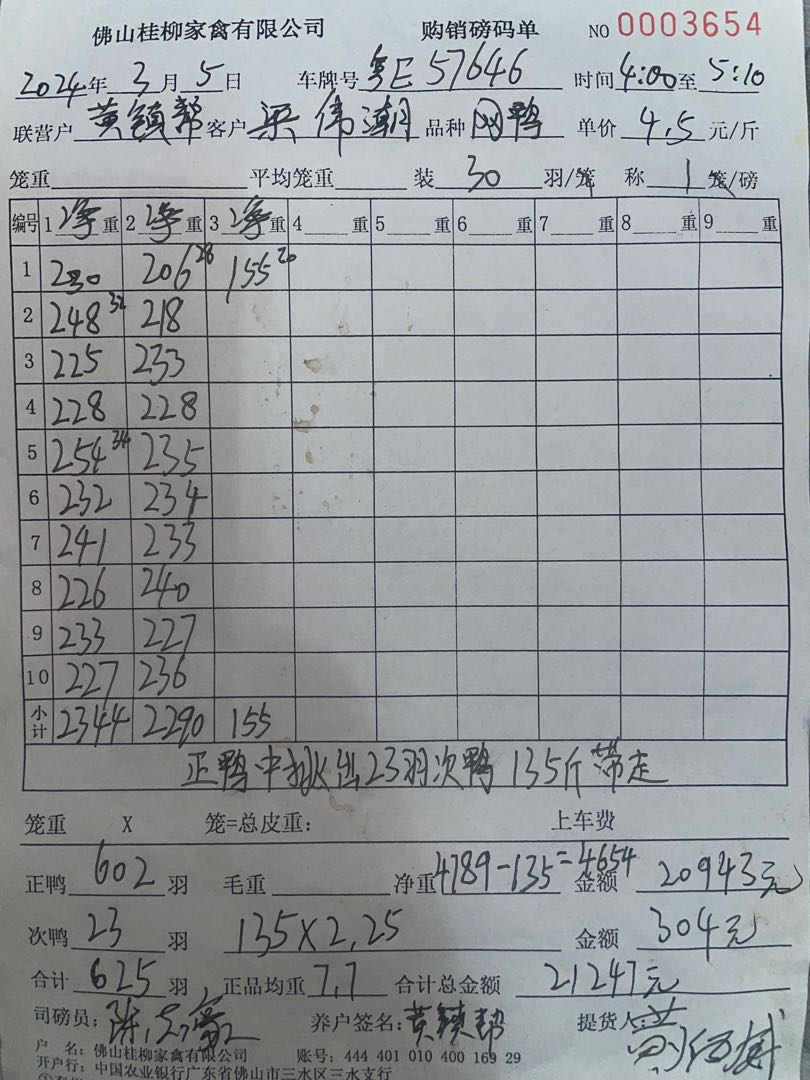 佛山桂柳家禽有限公司 购销磅码单 NO 0003654
2024年 3月 5日 车牌号 粤E 57646 时间 4:00至 5:10
联营户 黄镇帮 客户 梁伟潮 品种 网鸭 单价 4.5 元/斤
笼重 平均笼重 装 30 羽/笼 称 1 笼/磅
编号 1 净重 2 净重 3 净重 4 重 5 重 6 重 7 重 8 重 9 重
1 230 206 28 155 20
2 248 32 218
3 225 233
4 228 228
5 254 34 235
6 232 234
7 241 233
8 226 240
9 233 227
10 227 236
小计 2344 2290 155
正鸭中挑出23羽次鸭 135斤 带走
笼重 X 笼=总皮重: 上车费
正鸭 602 羽 毛重 净重 4789-135=4654 金额 20943元
次鸭 23 羽 135X2.25 金额 304元
合计 625 羽 正品均重 7.7 合计总金额 21247元
司磅员: 养户签名: 黄镇帮 提货人
户 名: 佛山桂柳家禽有限公司 账号: 444 401 010 400 169 29
开户行: 中国农业银行广东省佛山市三水区三水支行